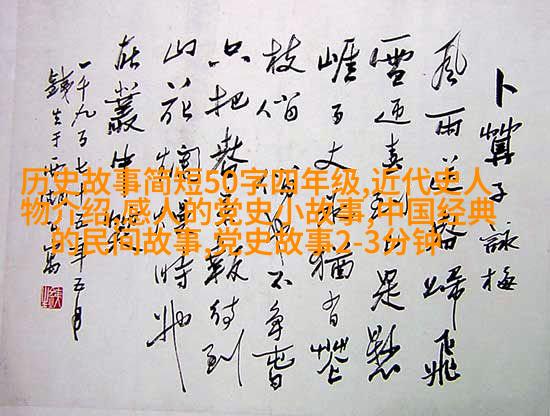 卜算子詠梅
風雨送春歸飛
雪迎春到已是懸
崖百丈冰猶有花
枝俏俏也不爭春
只把春來報待到
山花爛漫時她
在叢中笑
一千九百七十五年五月
历史故事简短50字四年级,近代史人
物介绍,感人的党史小故事,中国经典
的民间故事,党史故事2-3分钟